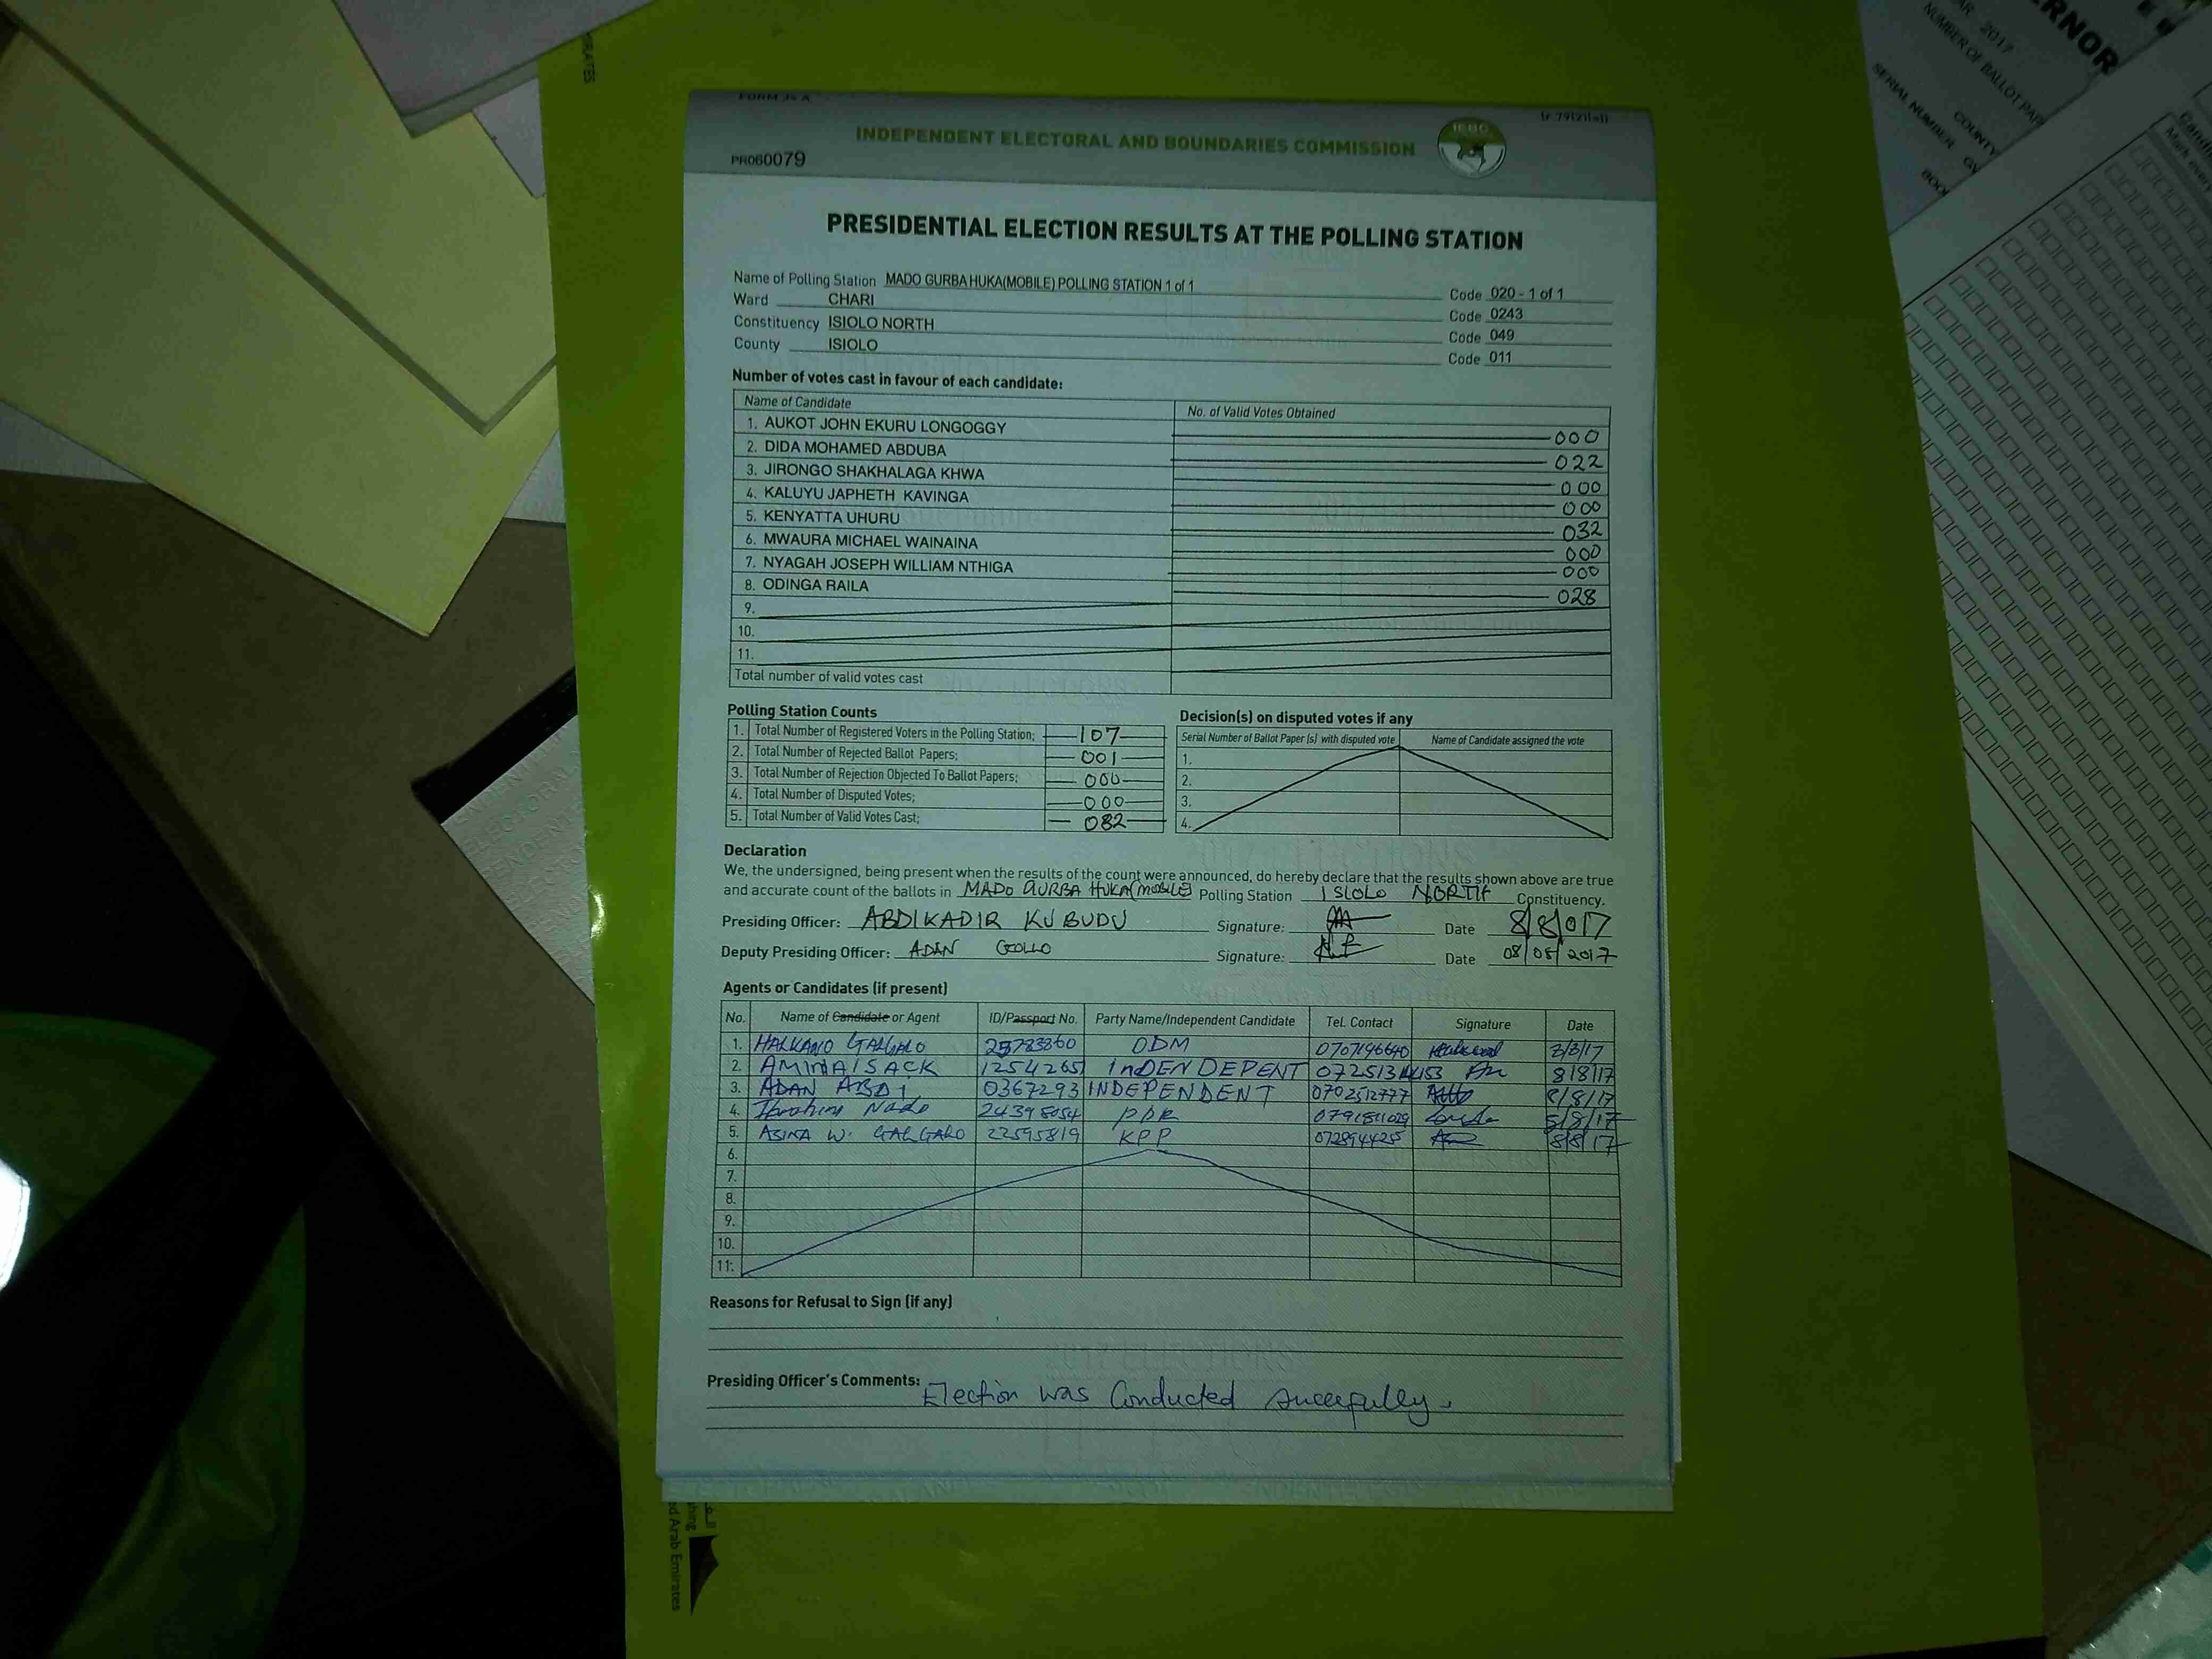 RATES
ERNOR
AR 2017
NUMBER OF BALLOT PAP
SERIAL NUMBER
COUNTY
FORM 34 A
INDEPENDENT ELECTORAL AND BOUNDARIES COMMISSION
IEBC
PR060079
PRESIDENTIAL ELECTION RESULTS AT THE POLLING STATION
Name of Polling Station MADO GURBA HUKA(MOBILE) POLLING STATION 1 of 1 Code 020 - 1 of 1
Ward CHARI Code 0243
Constituency ISIOLO NORTH Code 049
County ISIOLO Code 011
Number of votes cast in favour of each candidate:
Name of Candidate No. of Valid Votes Obtained
1. AUKOT JOHN EKURU LONGOGGY 000
2. DIDA MOHAMED ABDUBA 022
3. JIRONGO SHAKHALAGA KHWA 000
4. KALUYU JAPHETH KAVINGA 000
5. KENYATTA UHURU 032
6. MWAURA MICHAEL WAINAINA 000
7. NYAGAH JOSEPH WILLIAM NTHIGA 000
8. ODINGA RAILA 028
9.
10.
11.
Total number of valid votes cast
Polling Station Counts
1. Total Number of Registered Voters in the Polling Station; 107
2. Total Number of Rejected Ballot Papers; 001
3. Total Number of Rejection Objected To Ballot Papers; 000
4. Total Number of Disputed Votes; 000
5. Total Number of Valid Votes Cast; 082
Decision(s) on disputed votes if any
Serial Number of Ballot Paper (s) with disputed vote Name of Candidate assigned the vote
1.
2.
3.
4.
Declaration
We, the undersigned, being present when the results of the count were announced, do hereby declare that the results shown above are true
and accurate count of the ballots in MADO GURBA HUKA(MOBILE) Polling Station ISIOLO NORTH Constituency.
Presiding Officer: ABDIKADIR KUBUDU Signature: Date 8/8/017
Deputy Presiding Officer: ADAN GOLLO Signature: Date 08/08/2017
Agents or Candidates (if present)
No. Name of Candidate or Agent ID/Passport No. Party Name/Independent Candidate Tel. Contact Signature Date
1. HALKANO GALGALO 25783860 ODM 0707196640 8/8/17
2. AMINA ISACK 1254265 INDENDEPENT 8/8/17
3. ADAN ABDI 0367293 INDEPENDENT 0702512777 8/8/17
4. Ibrahim Nado 24398054 PDR 0791811029 8/8/17
5. ASINA W. GALGALO 22595819 KPP 072894425 8/8/17
6.
7.
8.
9.
10.
11.
Reasons for Refusal to Sign (if any)
Presiding Officer's Comments: Election was Conducted sucefully.
hing
ed Arab Emirates